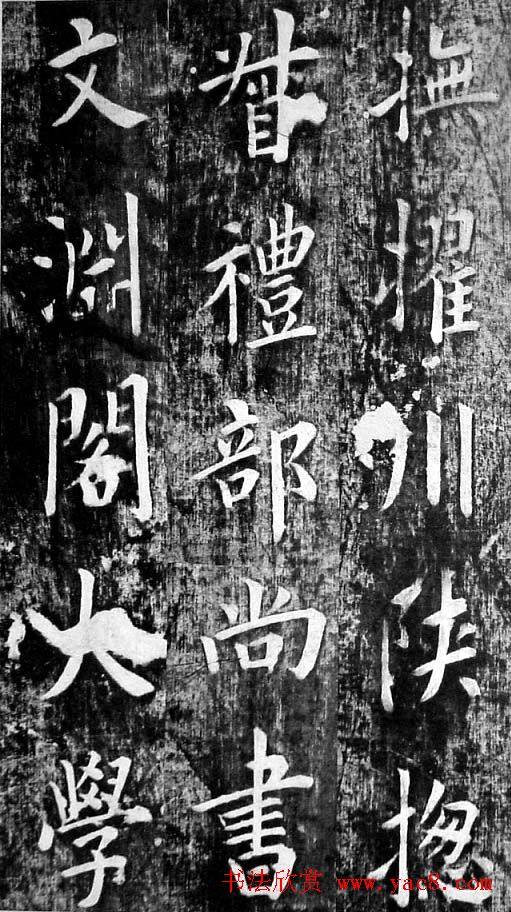 撫擢川陝揔
督禮部尚書
文淵閣大學
书法欣赏 www.yac8.com